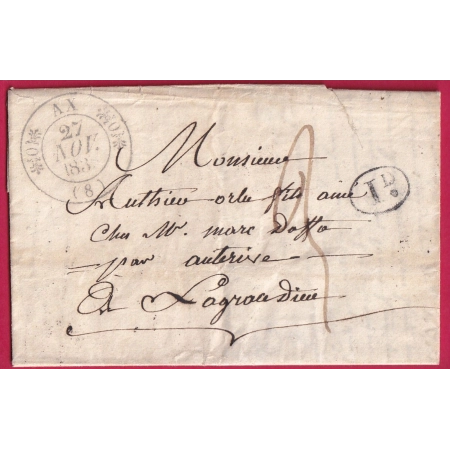 AX
27
NOV.
183
(8)
1D.
Monsieur
Mathieu orlu fils ainé
Ches Mr. marc Dosso
par auterive
A Lagrace Dieu
3